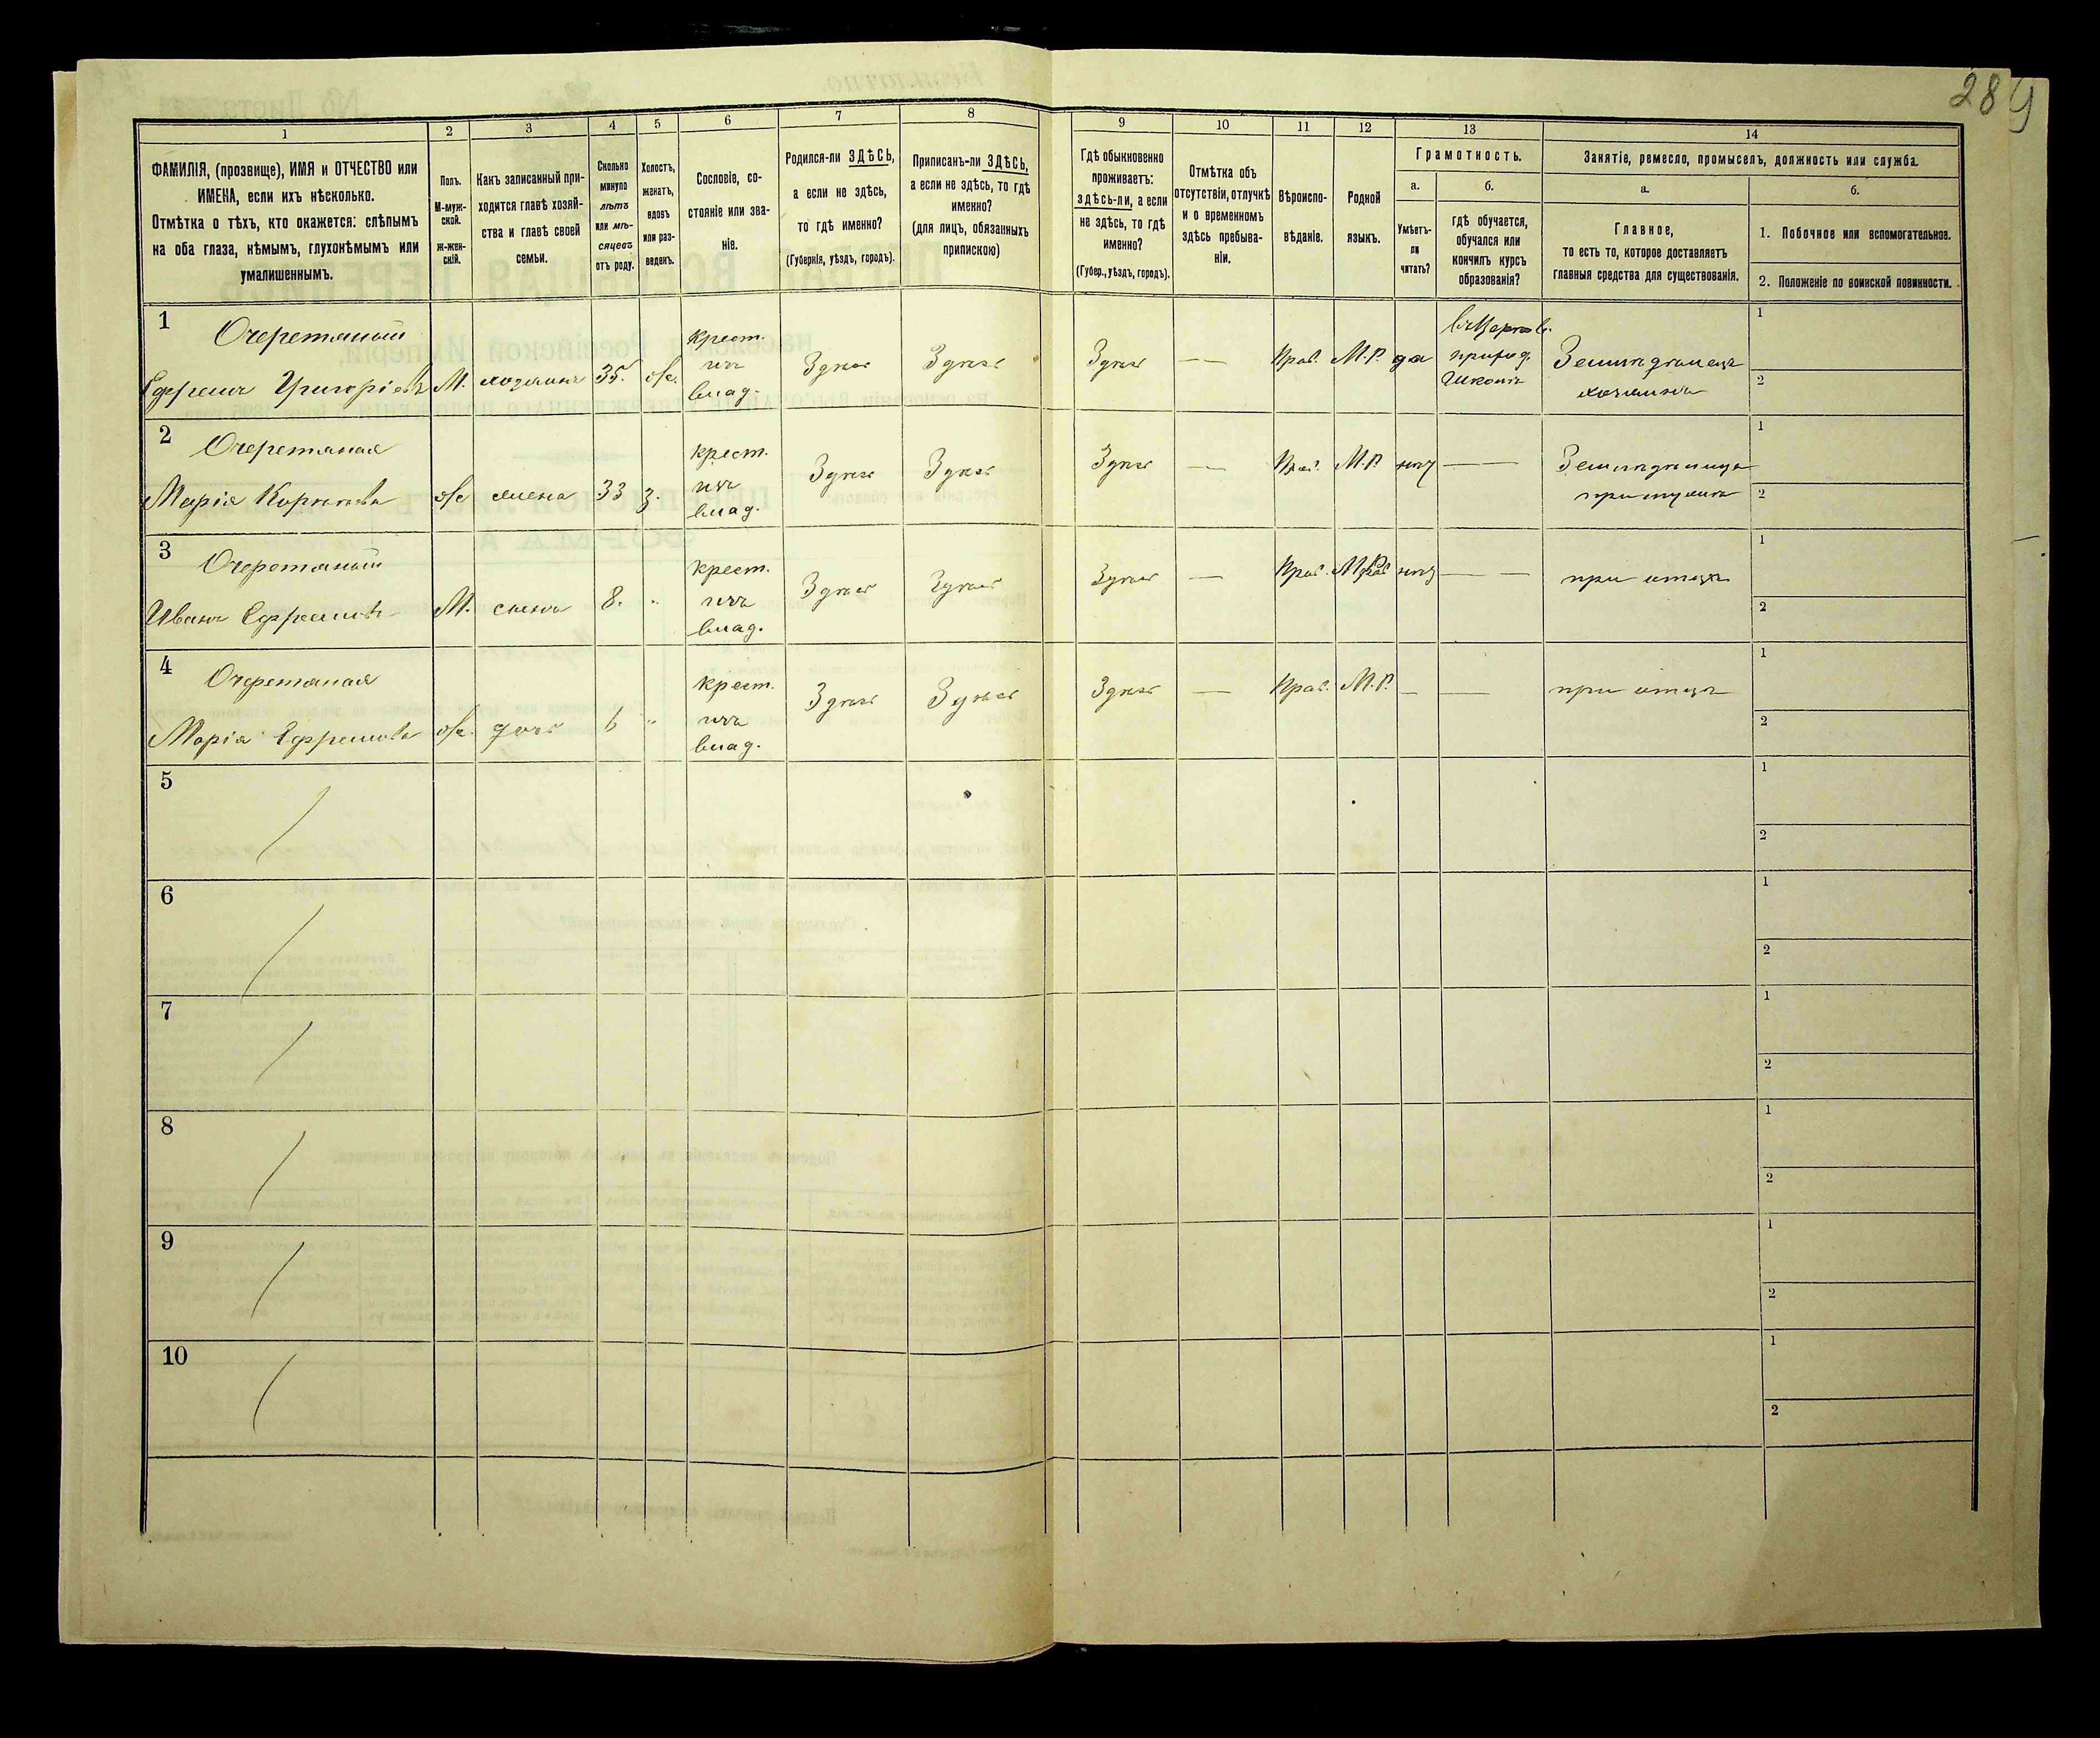 289
1
2
3
4
5
6
7
8
9
10
11
12
13
14
ФАМИЛІЯ, (прозвище), ИМЯ и ОТЧЕСТВО или
ИМЕНА, если ихъ нѣсколько.
Отмѣтка о тѣхъ, кто окажется: слѣпымъ
на оба глаза, нѣмымъ, глухонѣмымъ или
умалишеннымъ.
Полъ.
М-муж-
ской.
Ж-жен-
скій.
Какъ записанный при-
ходится главѣ хозяй-
ства и главѣ своей
семьи.
Сколько
минуло
лѣтъ
или мѣ-
сяцевъ
отъ роду.
Холостъ,
женатъ,
вдовъ
или раз-
веденъ.
Сословіе, со-
стояніе или зва-
ніе.
Родился-ли ЗДѢСЬ,
а если не здѣсь,
то гдѣ именно?
(Губернія, уѣздъ, городъ).
Приписанъ-ли ЗДѢСЬ,
а если не здѣсь, то гдѣ
именно?
(для лицъ, обязанныхъ
припискою)
Гдѣ обыкновенно
проживаетъ:
здѣсь-ли, а если
не здѣсь, то гдѣ
именно?
(Губер., уѣздъ, городъ).
Отмѣтка объ
отсутствіи, отлучкѣ
и о временномъ
здѣсь пребыва-
ніи.
Вѣроиспо-
вѣданіе.
Родной
языкъ.
Грамотность.
а.
Умѣетъ-
ли
читать?
б.
гдѣ обучается,
обучался или
кончилъ курсъ
образованія?
Занятіе, ремесло, промыселъ, должность или служба.
а.
Главное,
то есть то, которое доставляетъ
главныя средства для существованія.
б.
1. Побочное или вспомогательное.
2. Положеніе по воинской повинности.
1
Очеретяный
Ефремъ Григоріевъ М. хозяинъ 35. ж.
крест.
изъ
влад.
Здѣсь Здѣсь Здѣсь — Прав. М.Р. да
въ Церков.
приход.
школѣ
Земледѣлецъ
хозяинъ
1
2
2
Очеретяная
Марія Корнѣева ж жена 33 з.
крест.
изъ
влад.
Здѣсь Здѣсь Здѣсь — Прав. М.Р. нѣт —
Земледѣлица
при мужѣ
1
2
3
Очеретяный
Иванъ Ефремовъ М. сынъ 8. "
крест.
изъ
влад.
Здѣсь Здѣсь Здѣсь — Прав. М.Р. нѣт — —
при отцѣ
1
2
4
Очеретяная
Марія Ефремова ж. дочь 6 "
крест.
изъ
влад.
Здѣсь Здѣсь Здѣсь — Прав. М.Р. — —
при отцѣ
1
2
5
1
2
6
1
2
7
1
2
8
1
2
9
1
2
10
1
2